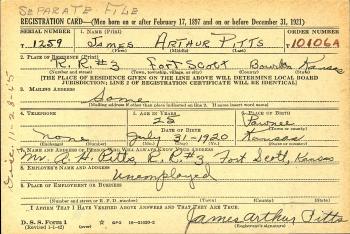 SEPARATE FILE
REGISTRATION CARD—(Men born on or after February 17, 1897 and on or before December 31, 1921)
SERIAL NUMBER 1. NAME (Print) ORDER NUMBER
T 1259 James Arthur Pitts T 10106A
(First) (Middle) (Last)
2. PLACE OF RESIDENCE (Print)
R. R. #3 Fort Scott Bourbon Kansas
(Number and street) (Town, township, village, or city) (County) (State)
[THE PLACE OF RESIDENCE GIVEN ON THE LINE ABOVE WILL DETERMINE LOCAL BOARD
JURISDICTION; LINE 2 OF REGISTRATION CERTIFICATE WILL BE IDENTICAL]
3. MAILING ADDRESS
Same
[Mailing address if other than place indicated on line 2. If same insert word same]
4. TELEPHONE 5. AGE IN YEARS 6. PLACE OF BIRTH
DATE OF BIRTH
none July 31-1920 Kansas
7. NAME AND ADDRESS OF PERSON WHO WILL ALWAYS KNOW YOUR ADDRESS
Mr. A. H. Pitts, R. R. #3, Fort Scott, Kansas
8. EMPLOYER'S NAME AND ADDRESS
Unemployed
9. PLACE OF EMPLOYMENT OR BUSINESS
(Number and street or R. F. D. number) (Town) (County) (State)
I AFFIRM THAT I HAVE VERIFIED ABOVE ANSWERS AND THAT THEY ARE TRUE.
D. S. S. Form 1
(Revised 1-1-42) GPO 16-21630-2
James Arthur Pitts
(Registrant's signature)